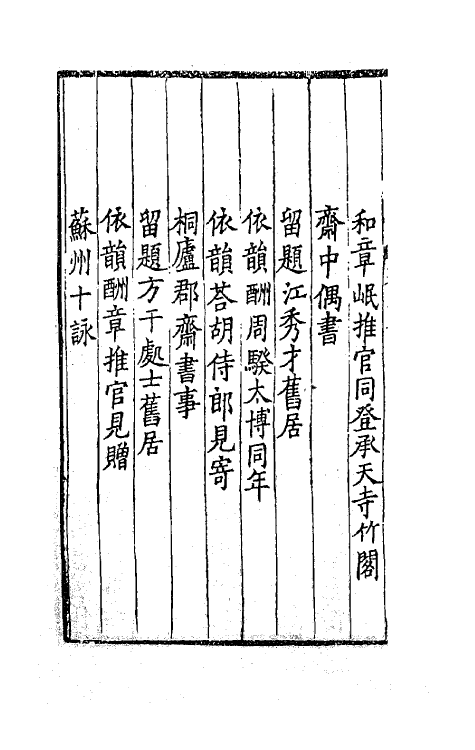 和章岷推官同登承天寺竹閣
齋中偶書
留題江秀才舊居
依韻酬周騤太博同年
依韻荅胡侍郎見寄
桐廬郡齋書事
留題方干處士舊居
依韻酬章推官見贈
蘇州十詠